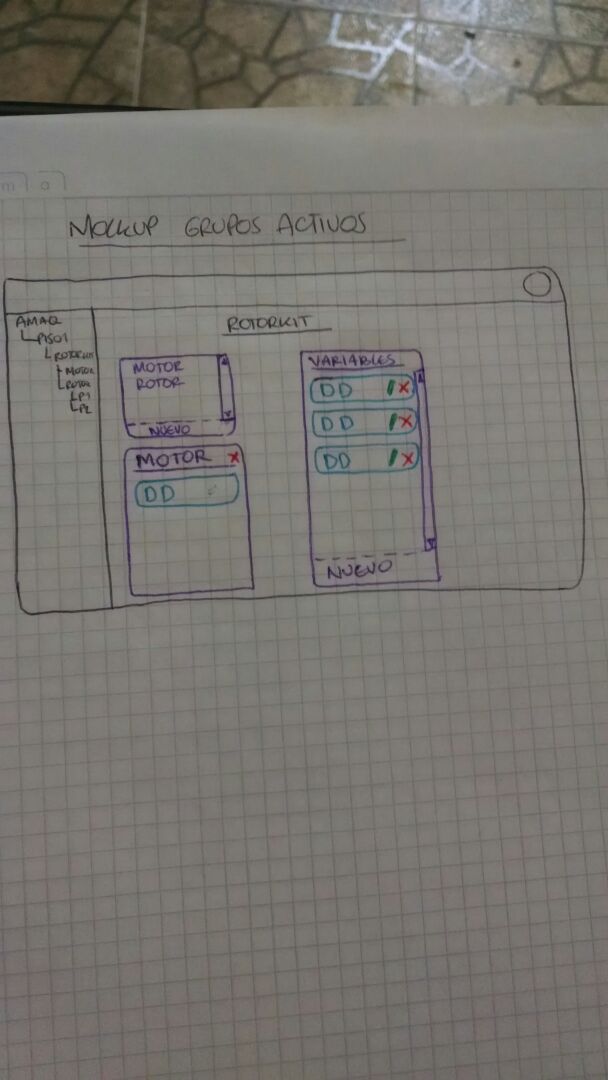 MOCKUP GRUPOS ACTIVOS
AMAQ
PISO1
ROTORKIT
MOTOR
ROTOR
P1
P2
ROTORKIT
MOTOR
ROTOR
NUEVO
MOTOR X
DD
VARIABLES
DD X
DD X
DD X
NUEVO